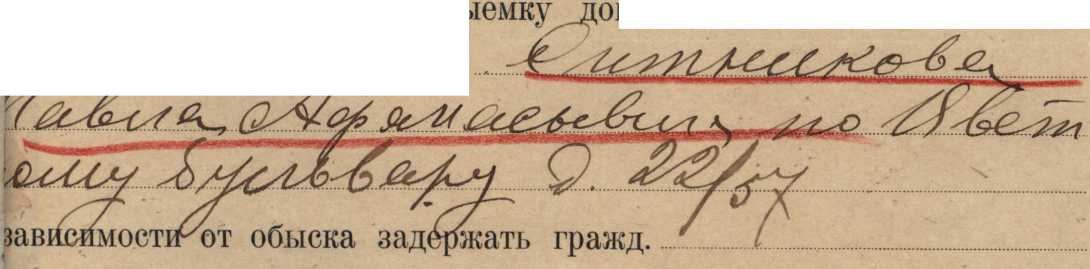 ыемку до
Ситникова
Павла Афанасьевича по Цвет
ому бульвару д. 22/57
зависимости от обыска задержать гражд.